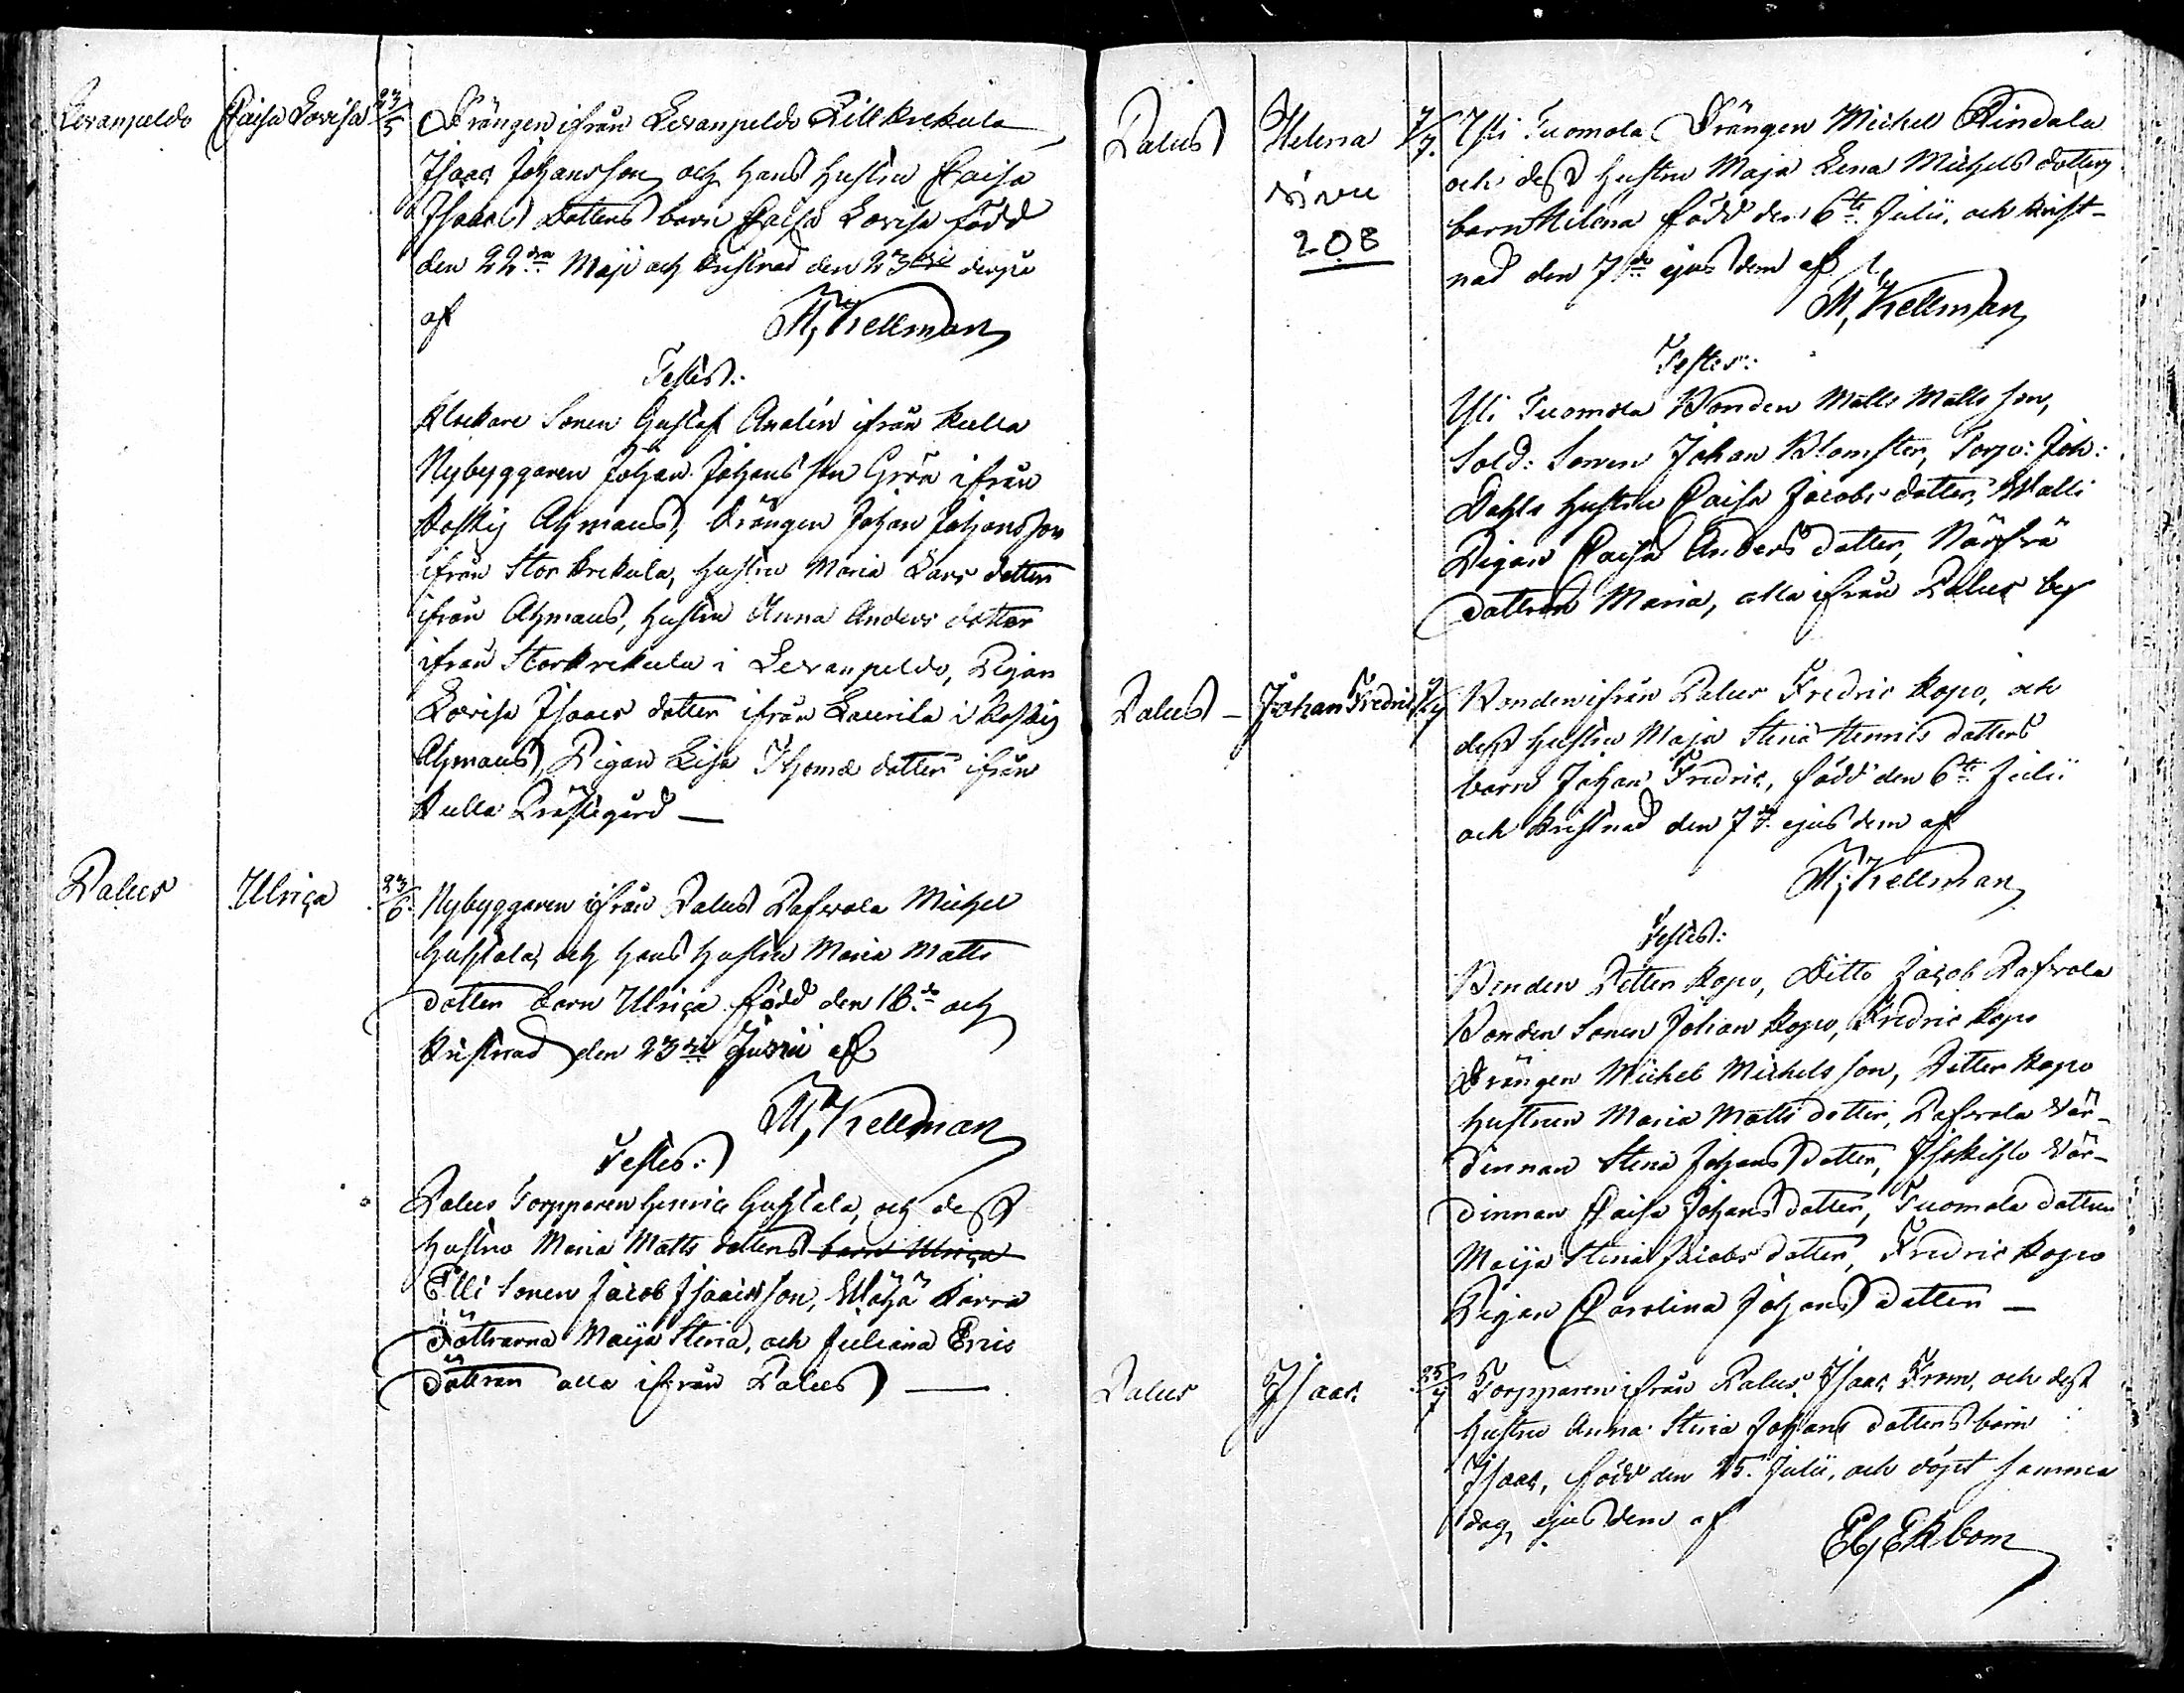 Levanpeldo Caisa Lovisa 23/5 Drängen ifrån Levanpeldo Lill Krekula
Isaac Johansson och hans hustru Caisa
Isaacs dotters barn Caisa Lovisa född
den 22dra Maji och kristnad den 23dje
af M, Kellman
Testes:
Klockare Sonen Gustaf Analin ifrån Kulla
Nybyggaren Johan Johansson Grön ifrån
Koskis Ahmaus, Drängen Johan Johansson
ifrån Stor Krekula, hustru Maria Lars dotter
ifrån Ahmaus, hustru Anna Anders dotter
ifrån Storkrekula i Levanpeldo, Pigan
Lovisa Isaacs dotter ifrån Laurila i Koskis
Ahmaus, Pigan Lisa Thomæ dotter ifrån
Kulla Prästegård —
Palus Ulrica 23/6 Nybyggaren ifrån Palus Pafvola Michel
Huhtala, och hans hustru Maria Matts
dotter barn Ulrica född den 18de och
kristnad den 23dje Junii af
M, Kellman
Testes:
Palus Torpparen Henric Huhtala, och dess
hustru Maria Matts dotters barn Ulrica
Elli Sonen Jacob Isaacsson, Wähä Karra
döttrarna Maija Stina, och Juliana Erics
döttrar alla ifrån Palus —
Palus Helena 7/7. Yli Tuomola Drängen Michel Rindala
och dess hustru Maja Lena Michels dotters
barn Helena född den 6te Julii, och krist-
nad den 7de ejusdem af
sivu
208
M, Kellman
Testes:
Yli Tuomola Bonden Matts Mattsson,
Sold: Sonen Johan Blomster, Torp: Joh:
Dahls hustru Caisa Jacobs dotter, Walli
Pigan Caisa Anders dotter, Närfvä
dottren Maria, alla ifrån Palus by
Palus — Johan Fredric 7/7 Bonden ifrån Palus Fredric Kopo, och
dess hustru Maja Stina Henrics dotters
barn Johan Fredric, född den 6te Julii
och kristnad den 7de ejusdem af
M, Kellman
Testes:
Bonden Petter Kopo, Ditto Jacob Pafvola
Bonden Sonen Johan Kopo, Fredric Kopo
Drängen Michel Michelsson, Petter Kopo
hustrun Maria Matts dotter, Pafvola Vär-
dinnan Stina Johans dotter, Iskihlo Vär-
dinnan Caisa Johans dotter, Tuomola dottren
Maija Stina Jacobs dotter, Fredric Kopo
Pigan Carolina Johans dotter —
Palus Isaac 25/7 Torpparen ifrån Palus, Isaac From, och dess
hustru Anna Stina Johans dotters barn
Isaac, född den 25. Julii, och döpt samma
dag ejusdem af Ekbom